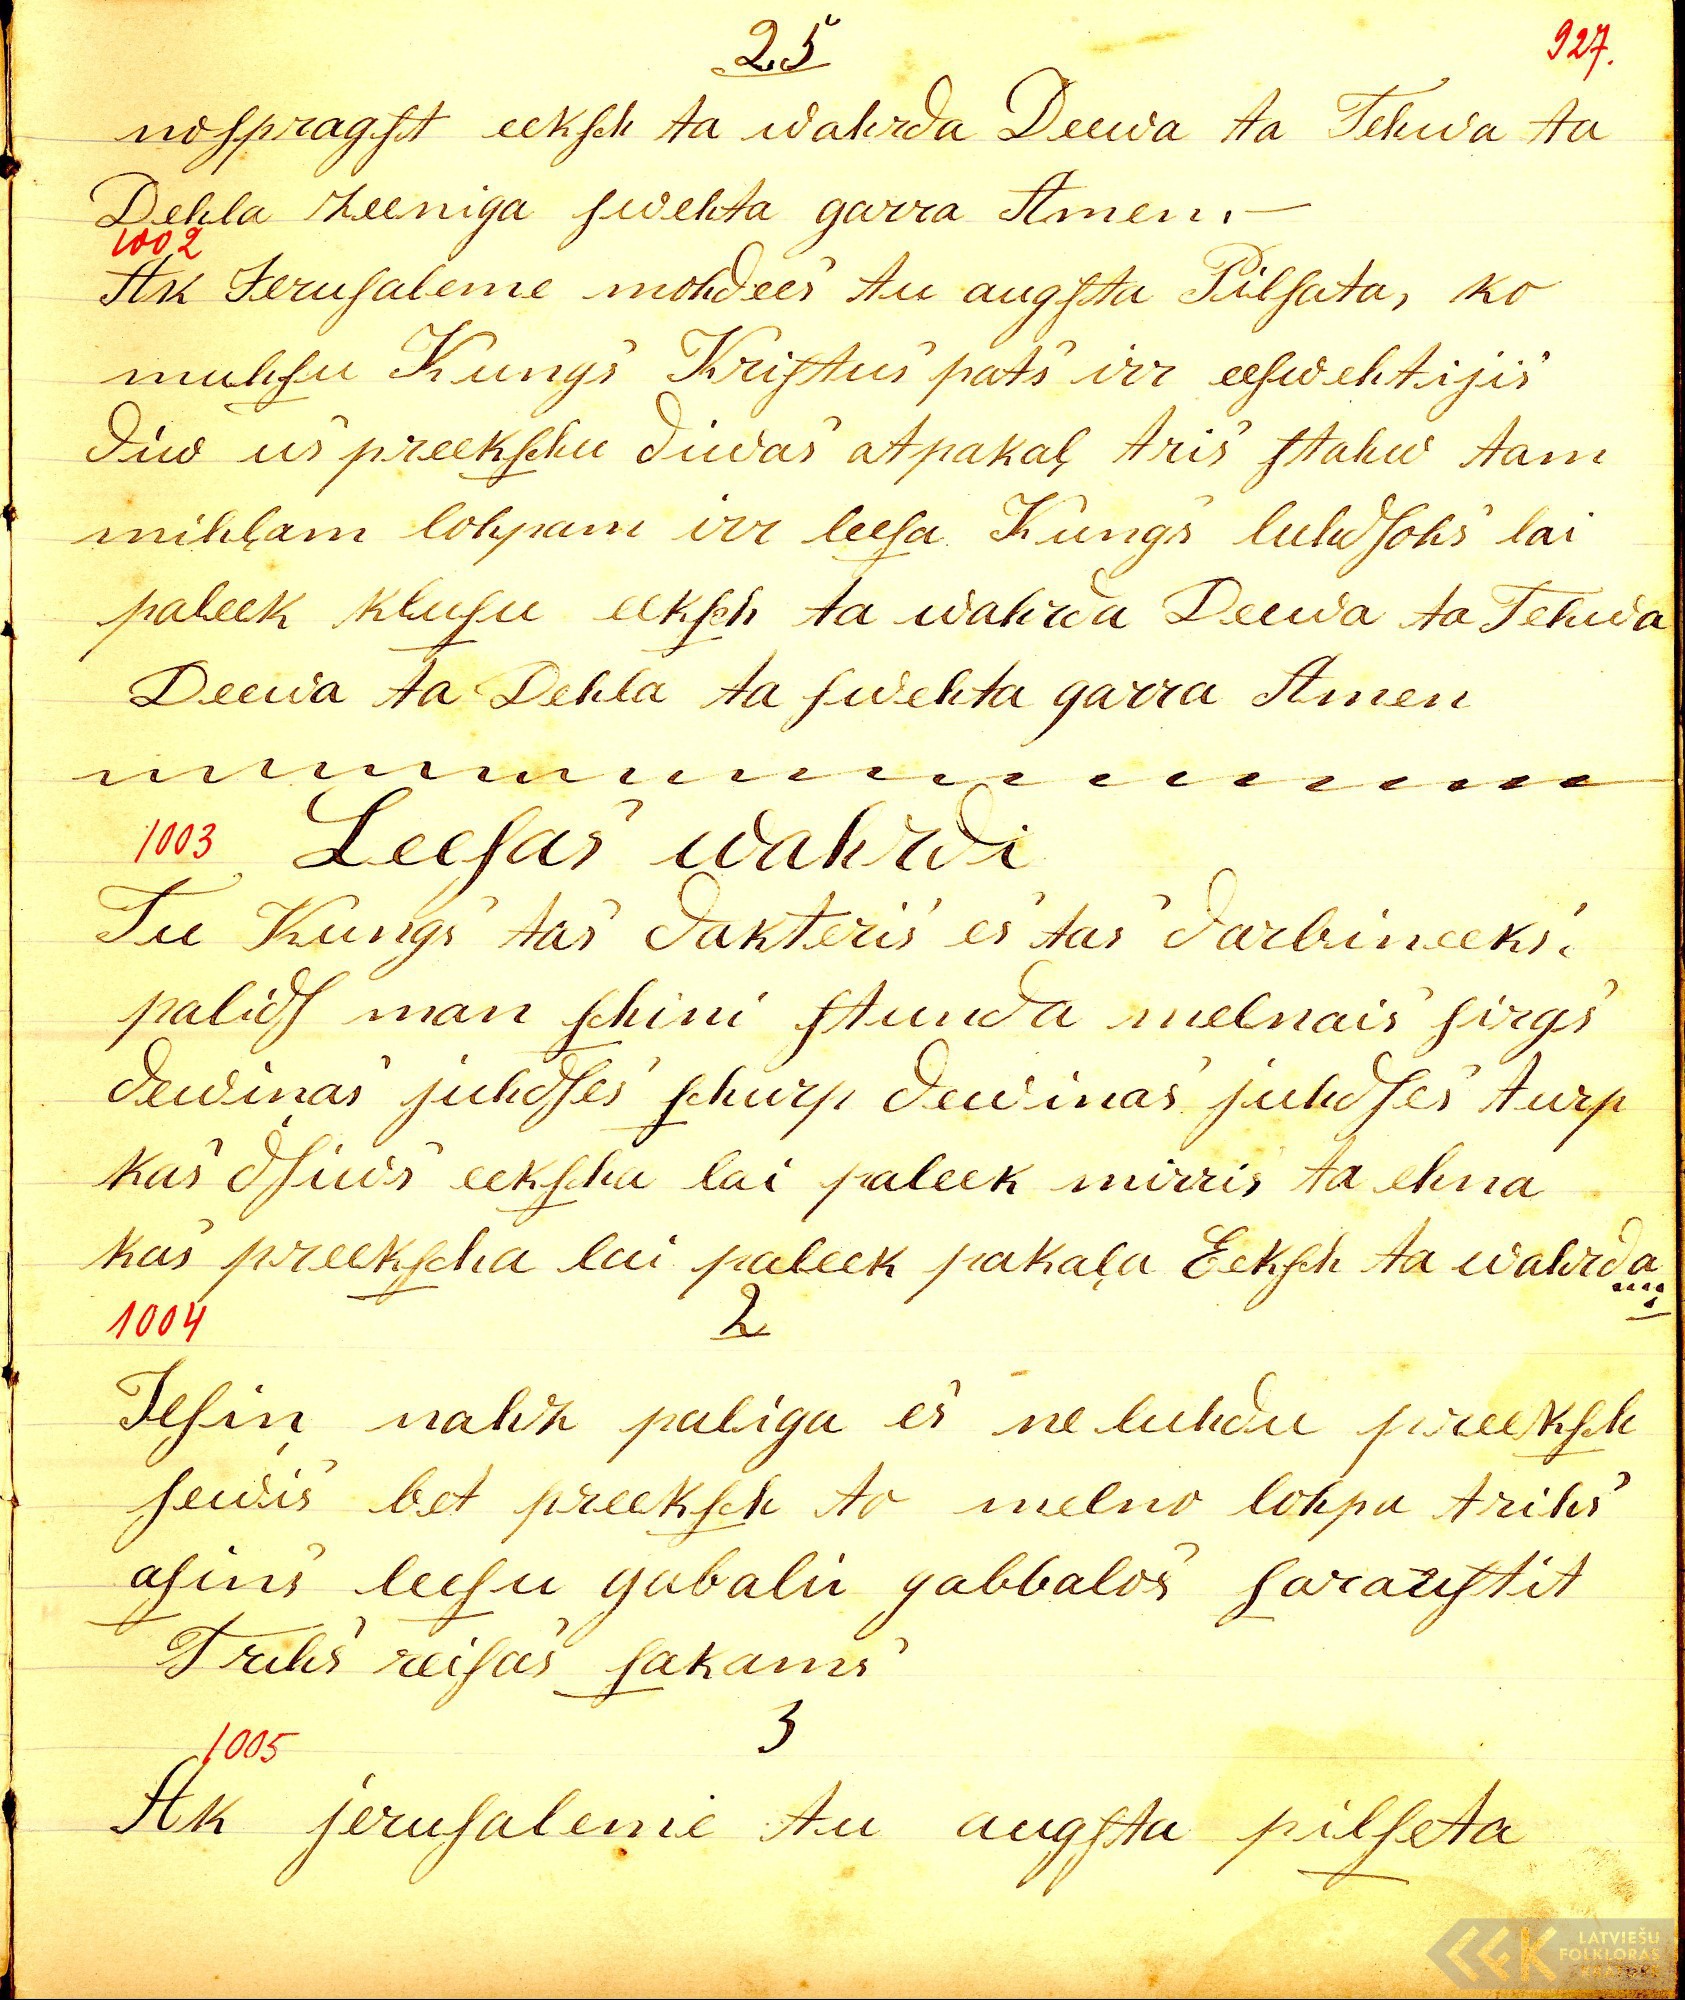 25
927.
noſpragſt eekſch ta wahrda Deewa ta Tehwa ta
Dehla zeeniga ſwehta garra Amen. —
1002
Ak Jeruſaleme mohdees tu augſta Pilſata, ko
muhſu Kungs Kriſtus pats irr eeſwehtijis
diw us preekſchu diwas atpakaļ tris ſtahw tam
mihļam lohpam irr leeſa Kungs luhdſohs lai
paleek kluſu eekſch ta wahrda Deewa ta Tehwa
Deewa ta Dehla ta ſwehta garra Amen
1003 Leeſas wahrdi
Tu Kungs tas dakteris es tas darbineeks.
palidſ man ſchini ſtunda melnais ſirgs
dewiņas juhdſes ſchurp dewinas juhdſes turp
kas dſiws eekſcha lai paleek mirris ta ehna
kas preekſcha lai paleek pakaļa Eekſch ta wahrda
1004
2
Jeſiņ nahz paliga es ne luhdu preekſch
ſewis bet preekſch to melno lohpu trihs
aſins leeſu gabali gabbalos ſarauſtit
Trihs reiſas ſakams
3
1005
Ak jeruſaleme tu augſta pilſeta
LATVIEŠU
FOLKLORAS